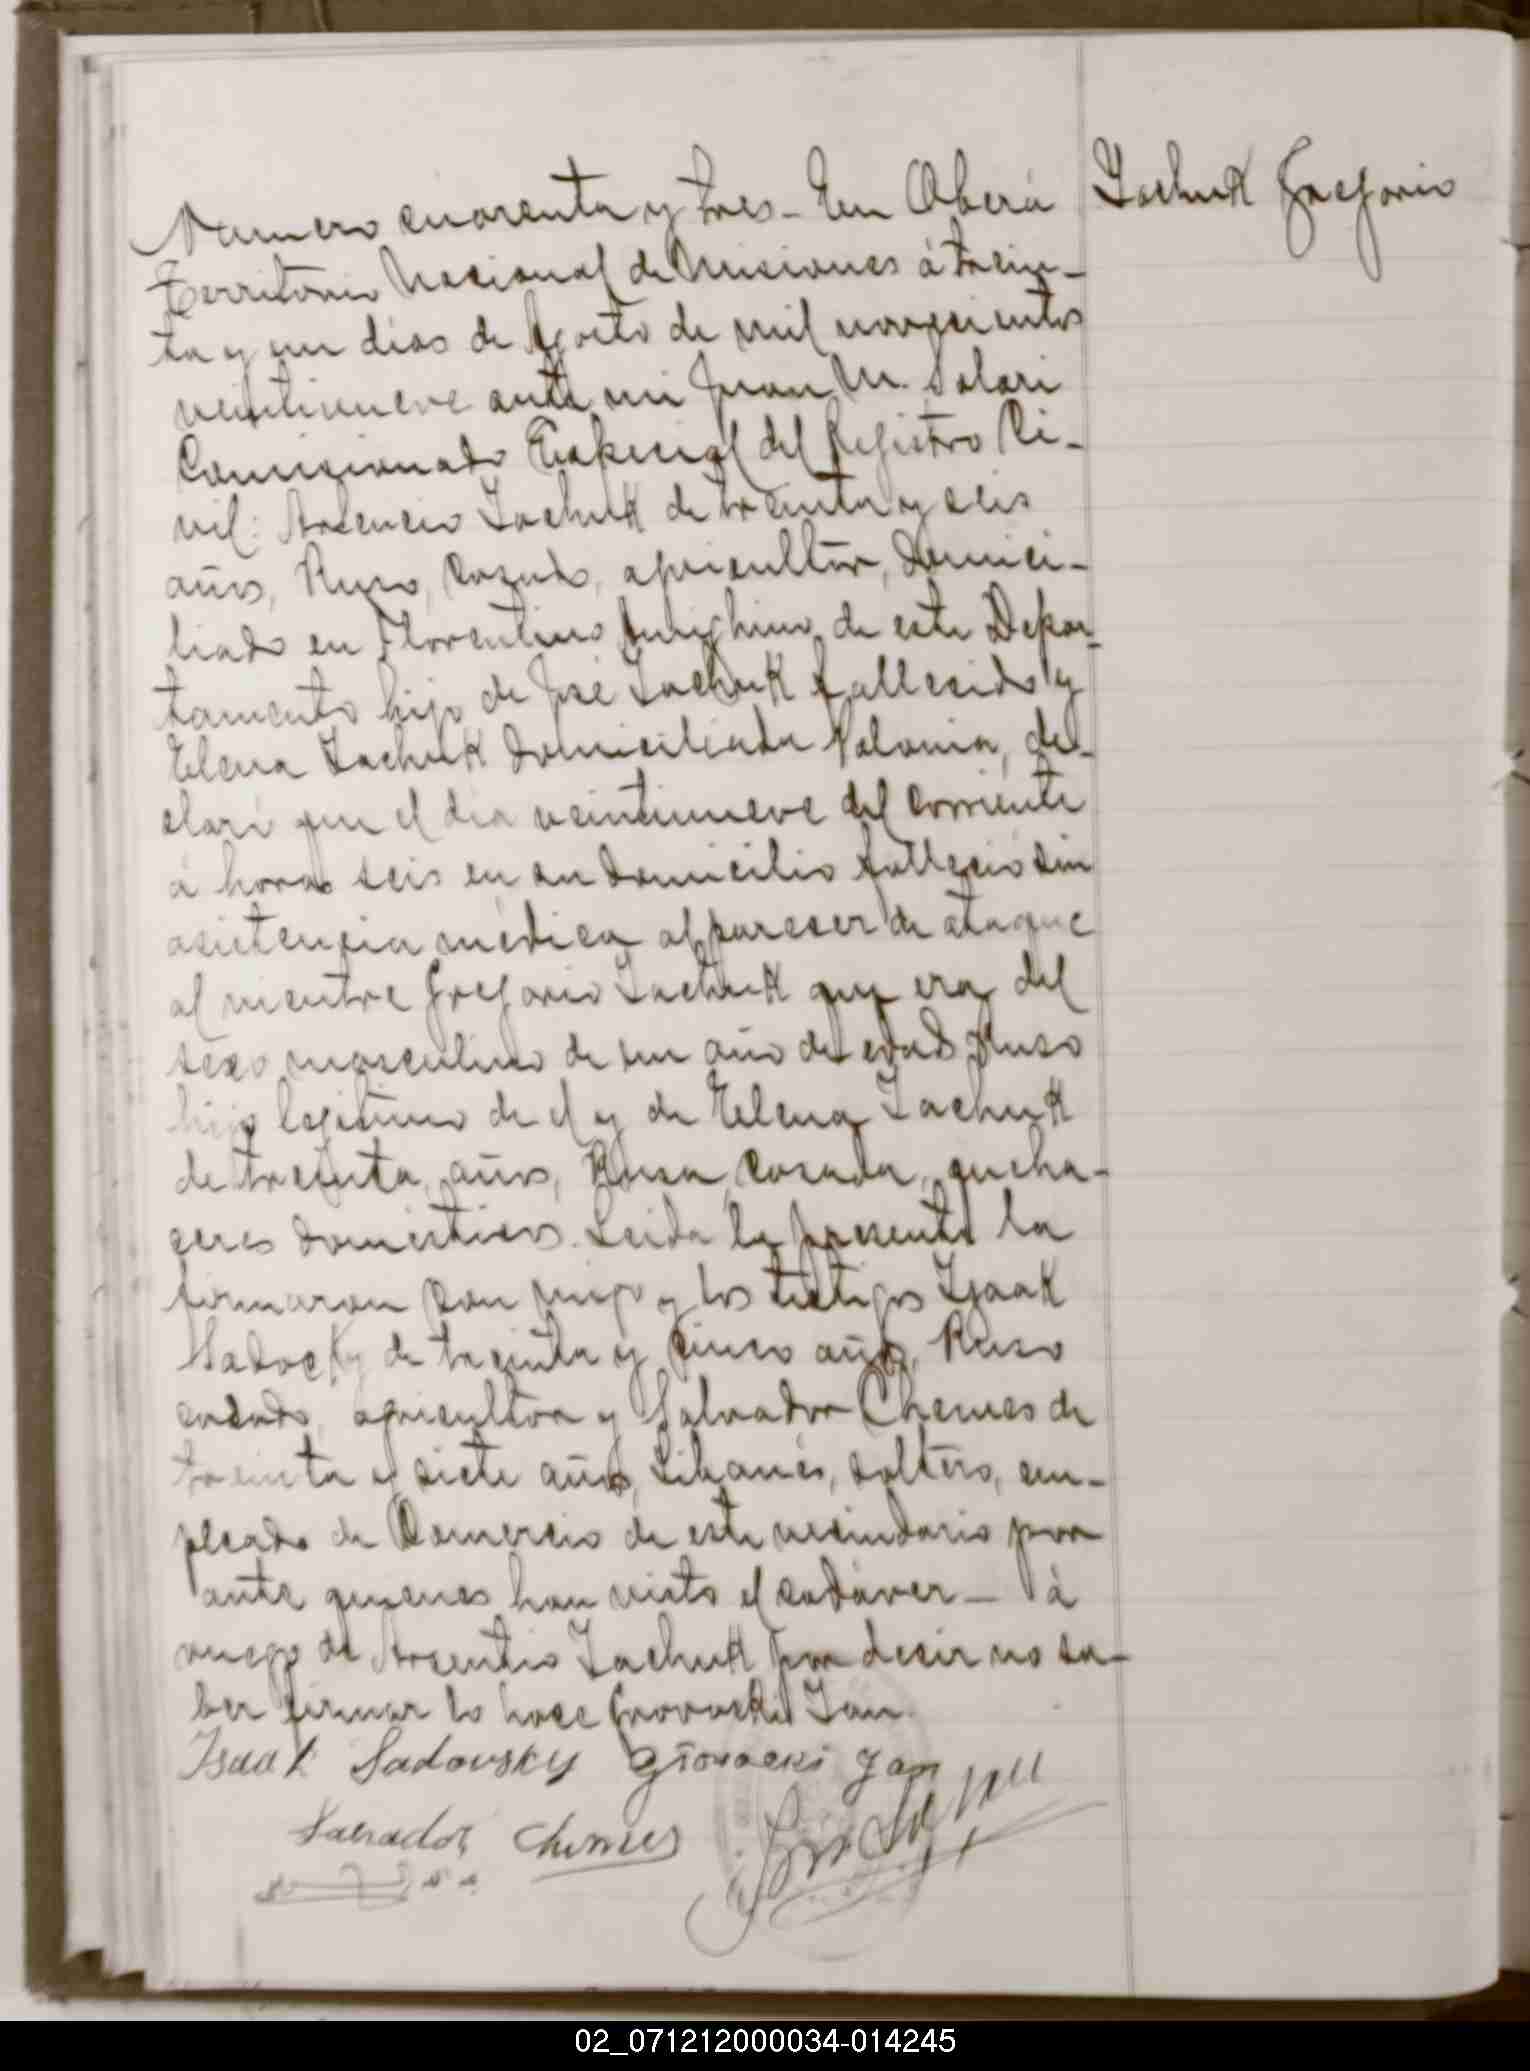 Numero cuarenta y tres - En Oberá
Iachuk Gregorio
Territorio Nacional de Misiones á trein-
ta y un dias de Agosto de mil novecientos
veintinueve ante mi Juan M. Solari
Comicionado Especial del Registro Ci-
vil: Arsencio Iachuk de treinta y seis
años, Ruso, Casado, agricultor, domici-
liado en Florentino Ameghino de este Depar-
tamento hijo de José Iachuk fallecido y
Elena Iachuk domiciliada Polonia, de-
claró que el dia veintinueve del corriente
á horas seis en su domicilio falleció sin
asistencia médica al pareser de ataque
al vientre Gregorio Iachuk que era del
sexo masculino de un año de edad Ruso
hijo legitimo de el y de Elena Iachuk
de treinta años, Rusa, Casada, queha-
ceres domesticos. Leida la presente la
firmaron con migo y los testigos Isaak
Sadocky de treinta y cinco años, Ruso
casado, agricultor y Salvador Chemes de
treinta y siete años, Libanés, soltero, em-
pleado de Comercio de este vecindario por
ante quienes han visto el cadáver - á
ruego de Arsentio Iachuk por decir no sa-
ber firmar lo hace Gronacki Jan.
Isaak Sadovsky Gronacki Jan
Salvador Chemes
02_071212000034-014245